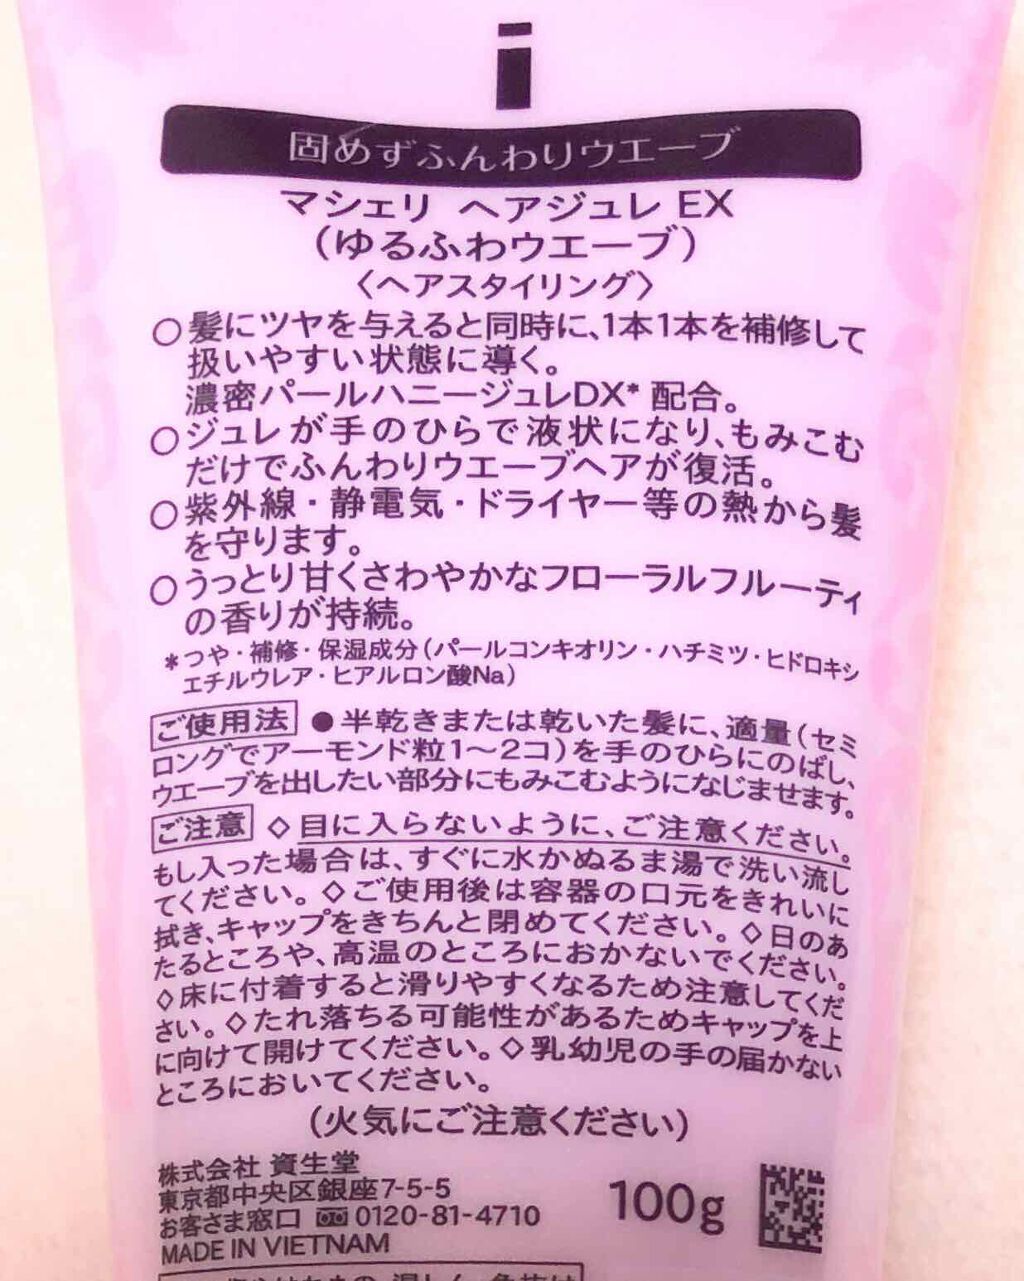 固めずふんわりウエーブ
マシェリ ヘアジュレ EX
（ゆるふわウエーブ）
〈ヘアスタイリング〉
○髪にツヤを与えると同時に、1本1本を補修して
扱いやすい状態に導く。
濃密パールハニージュレDX* 配合。
○ジュレが手のひらで液状になり、もみこむ
だけでふんわりウエーブヘアが復活。
○紫外線・静電気・ドライヤー等の熱から髪
を守ります。
○うっとり甘くさわやかなフローラルフルーティ
の香りが持続。
*つや・補修・保湿成分（パールコンキオリン・ハチミツ・ヒドロキシ
エチルウレア・ヒアルロン酸Na）
ご使用法 ●半乾きまたは乾いた髪に、適量（セミ
ロングでアーモンド粒1～2コ）を手のひらにのばし、
ウエーブを出したい部分にもみこむようになじませます。
ご注意 ◇目に入らないように、ご注意ください。
もし入った場合は、すぐに水かぬるま湯で洗い流し
てください。◇ご使用後は容器の口元をきれいに
拭き、キャップをきちんと閉めてください。◇日のあ
たるところや、高温のところにおかないでください。
◇床に付着すると滑りやすくなるため注意してくだ
さい。◇たれ落ちる可能性があるためキャップを上
に向けて開けてください。◇乳幼児の手の届かない
ところにおいてください。
（火気にご注意ください）
株式会社 資生堂
東京都中央区銀座7-5-5
お客さま窓口 0120-81-4710
MADE IN VIETNAM
100g